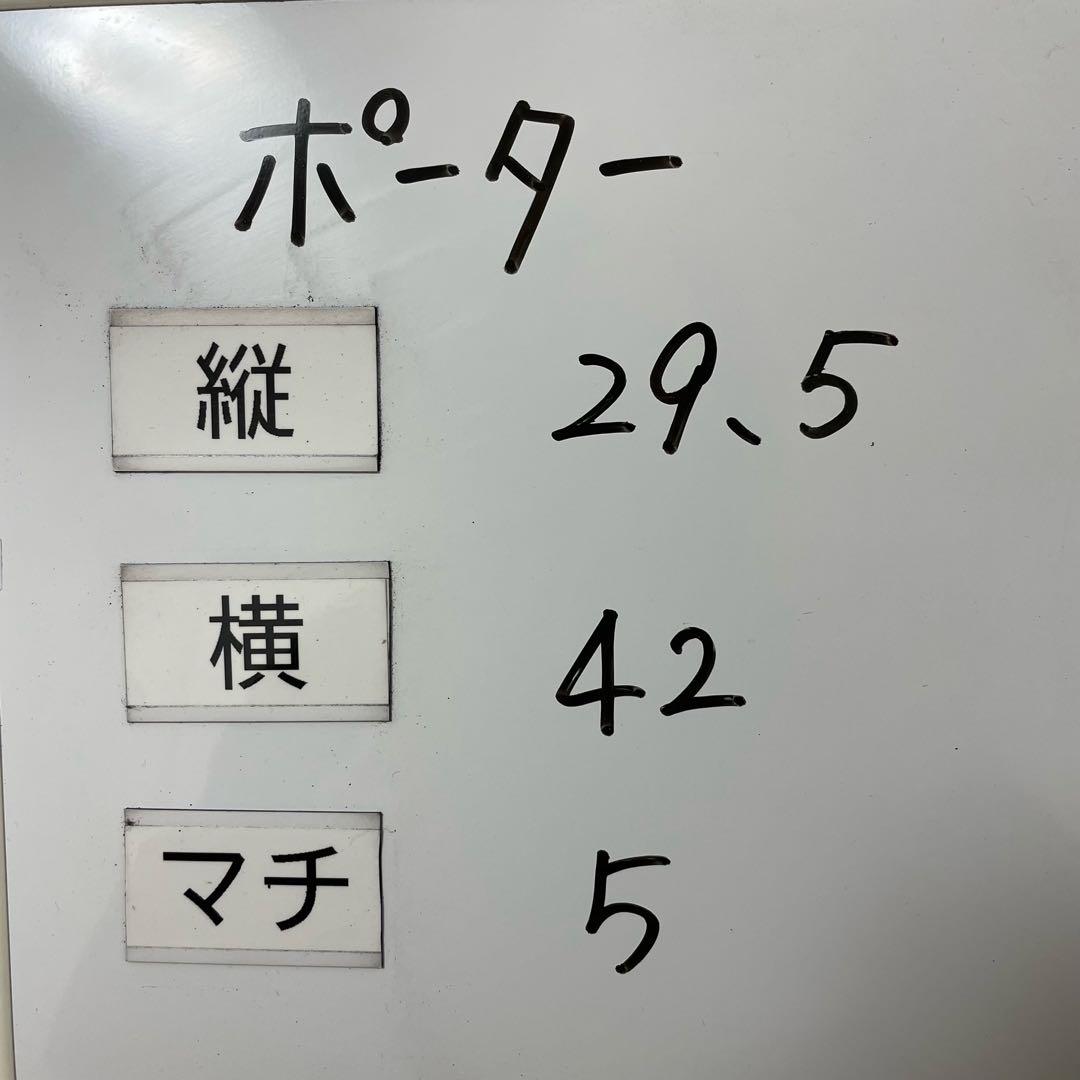 ポーター
縦 29、5
横 42
マチ 5